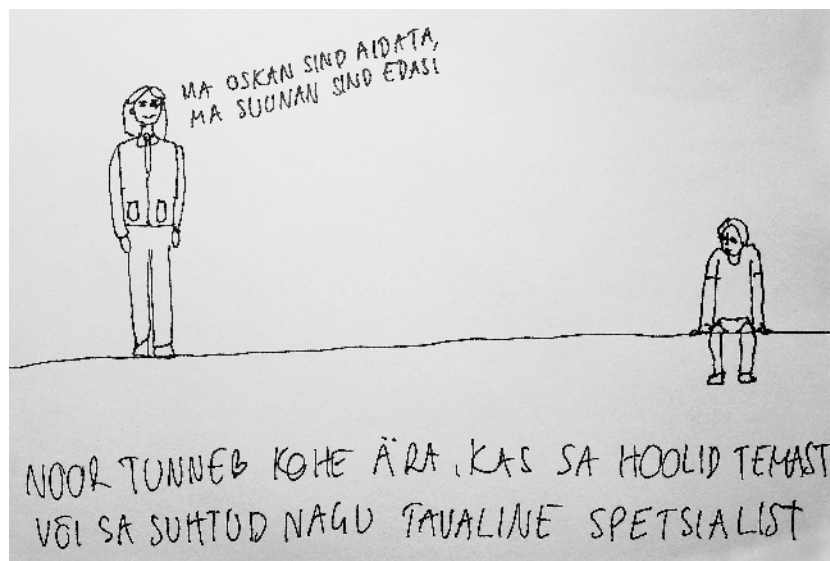 MA OSKAN SIND AIDATA,
MA SUUNAN SIND EDASI
NOOR TUNNEB KOHE ÄRA, KAS SA HOOLID TEMAST
VÕI SA SUHTUD NAGU TAVALINE SPETSIALIST